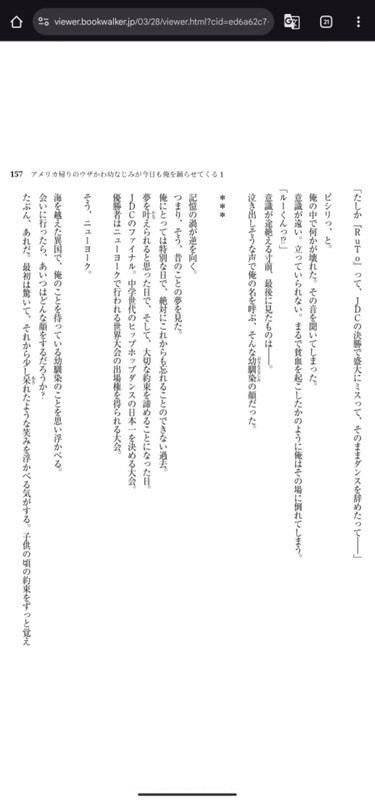 viewer.bookwalker.jp/03/28/viewer.html?cid=ed6a62c7-
21
157 アメリカ帰りのウザかわ幼なじみが今日も俺を踊らせてくる 1
「たしか『RuTo』って、JDCの決勝で盛大にミスって、そのままダンスを辞めたって――」
ピシリっ、と。
俺の中で何かが壊れた。その音を聞いてしまった。
意識が遠い。立っていられない。まるで貧血を起こしたかのように俺はその場に倒れてしまう。
「ルーくんっ!?」
意識が途絶える寸前、最後に見たものは――。
泣き出しそうな声で俺の名を呼ぶ、そんな幼馴染の顔だった。
***
記憶の渦が逆を向く。
つまり、そう、昔のことの夢を見た。
俺にとっては特別な日で、絶対にこれからも忘れることのできない過去。
夢を叶えられると思った日で、そして、大切な約束を諦めることになった日。
JDCのファイナル。中学世代のヒップホップダンスの日本一を決める大会。
優勝者はニューヨークで行われる世界大会の出場権を得られる大会。
そう、ニューヨーク。
海を越えた異国で、俺のことを待っている幼馴染のことを思い浮かべる。
会いに行ったら、あいつはどんな顔をするだろうか?
たぶん、あれだ。最初は驚いて、それから少し呆れたような笑みを浮かべる気がする。子供の頃の約束をずっと覚え